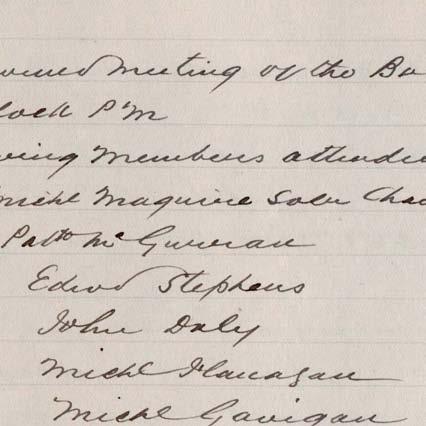 ourned Meeting of the Bo
lock P'M
wing Members attended
Michl Maguire Solr Chai
Patk McGurran
Edwd Stephens
John Daly
Michl Flanagan
Michl Gavigan